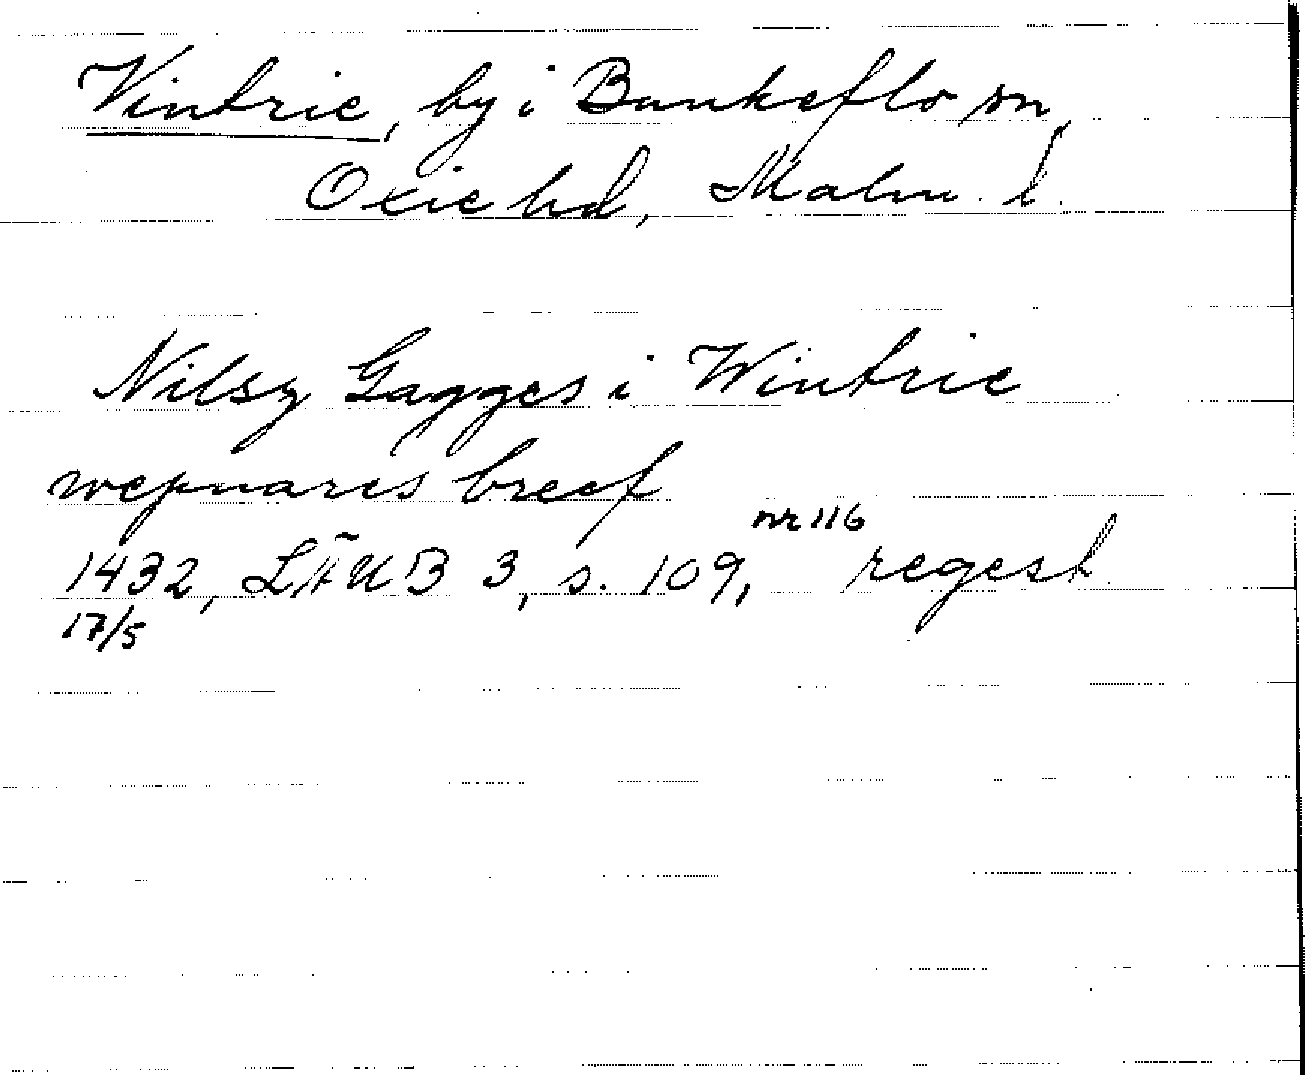 Vintrie, by i Bunkeflo sn,
Oxie hd, Malm. l.
Nilsz Gagges i Wintrie
wepnares breef
nr 116
1432, LÄUB 3, s. 109, regest
17/5